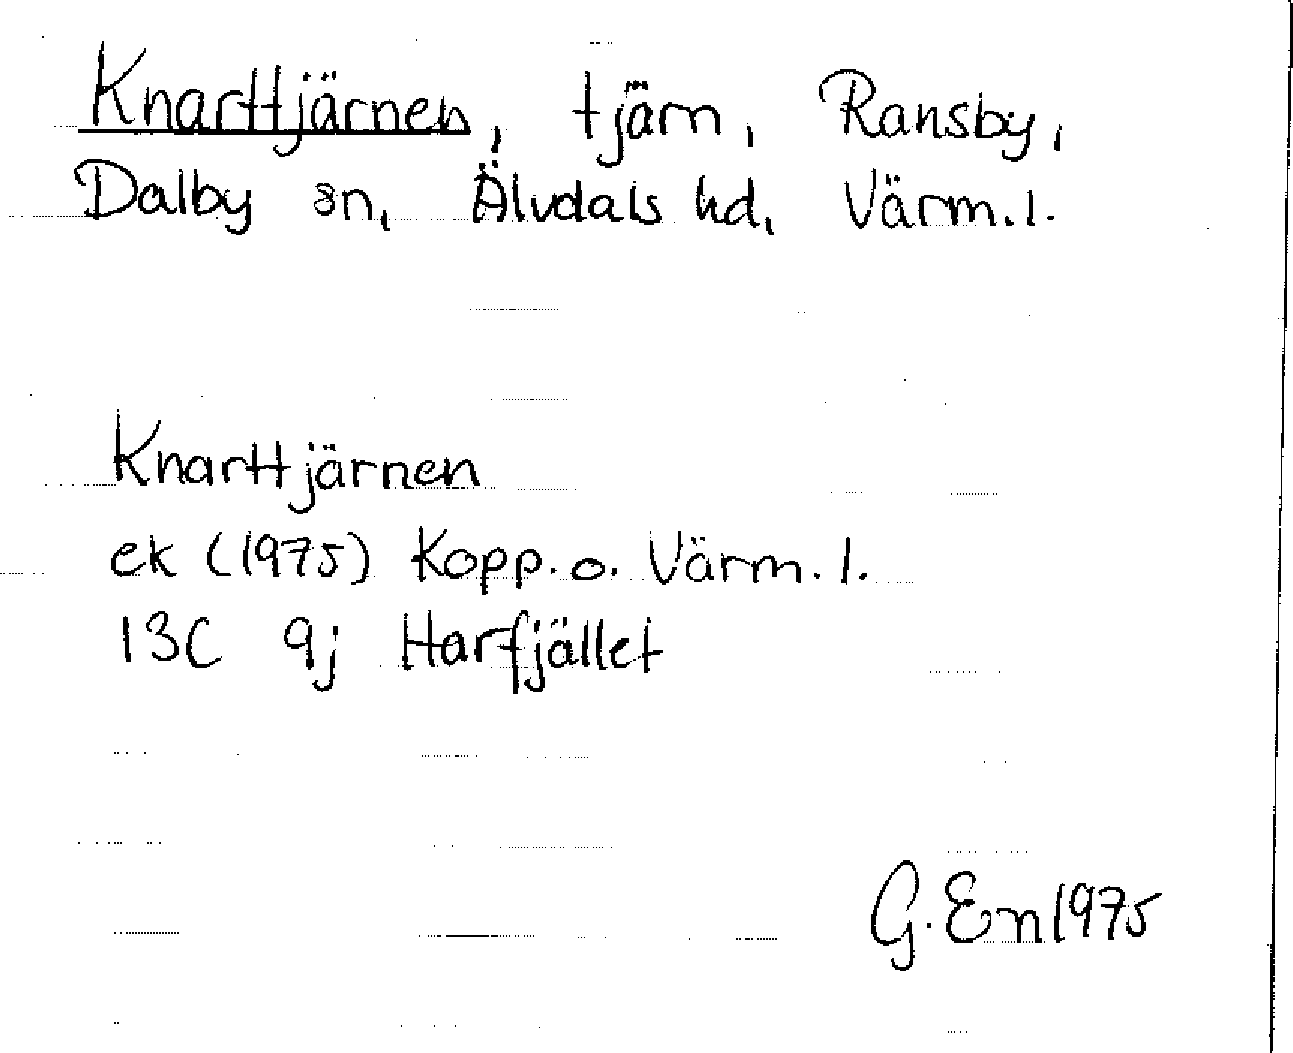 Knarttjärnen, tjärn, Ransby,
Dalby sn, Älvdals hd, Värm. l.
Knarttjärnen
ek (1975) Kopp. o. Värm. l.
13C 9j Harfjället
G. En 1975